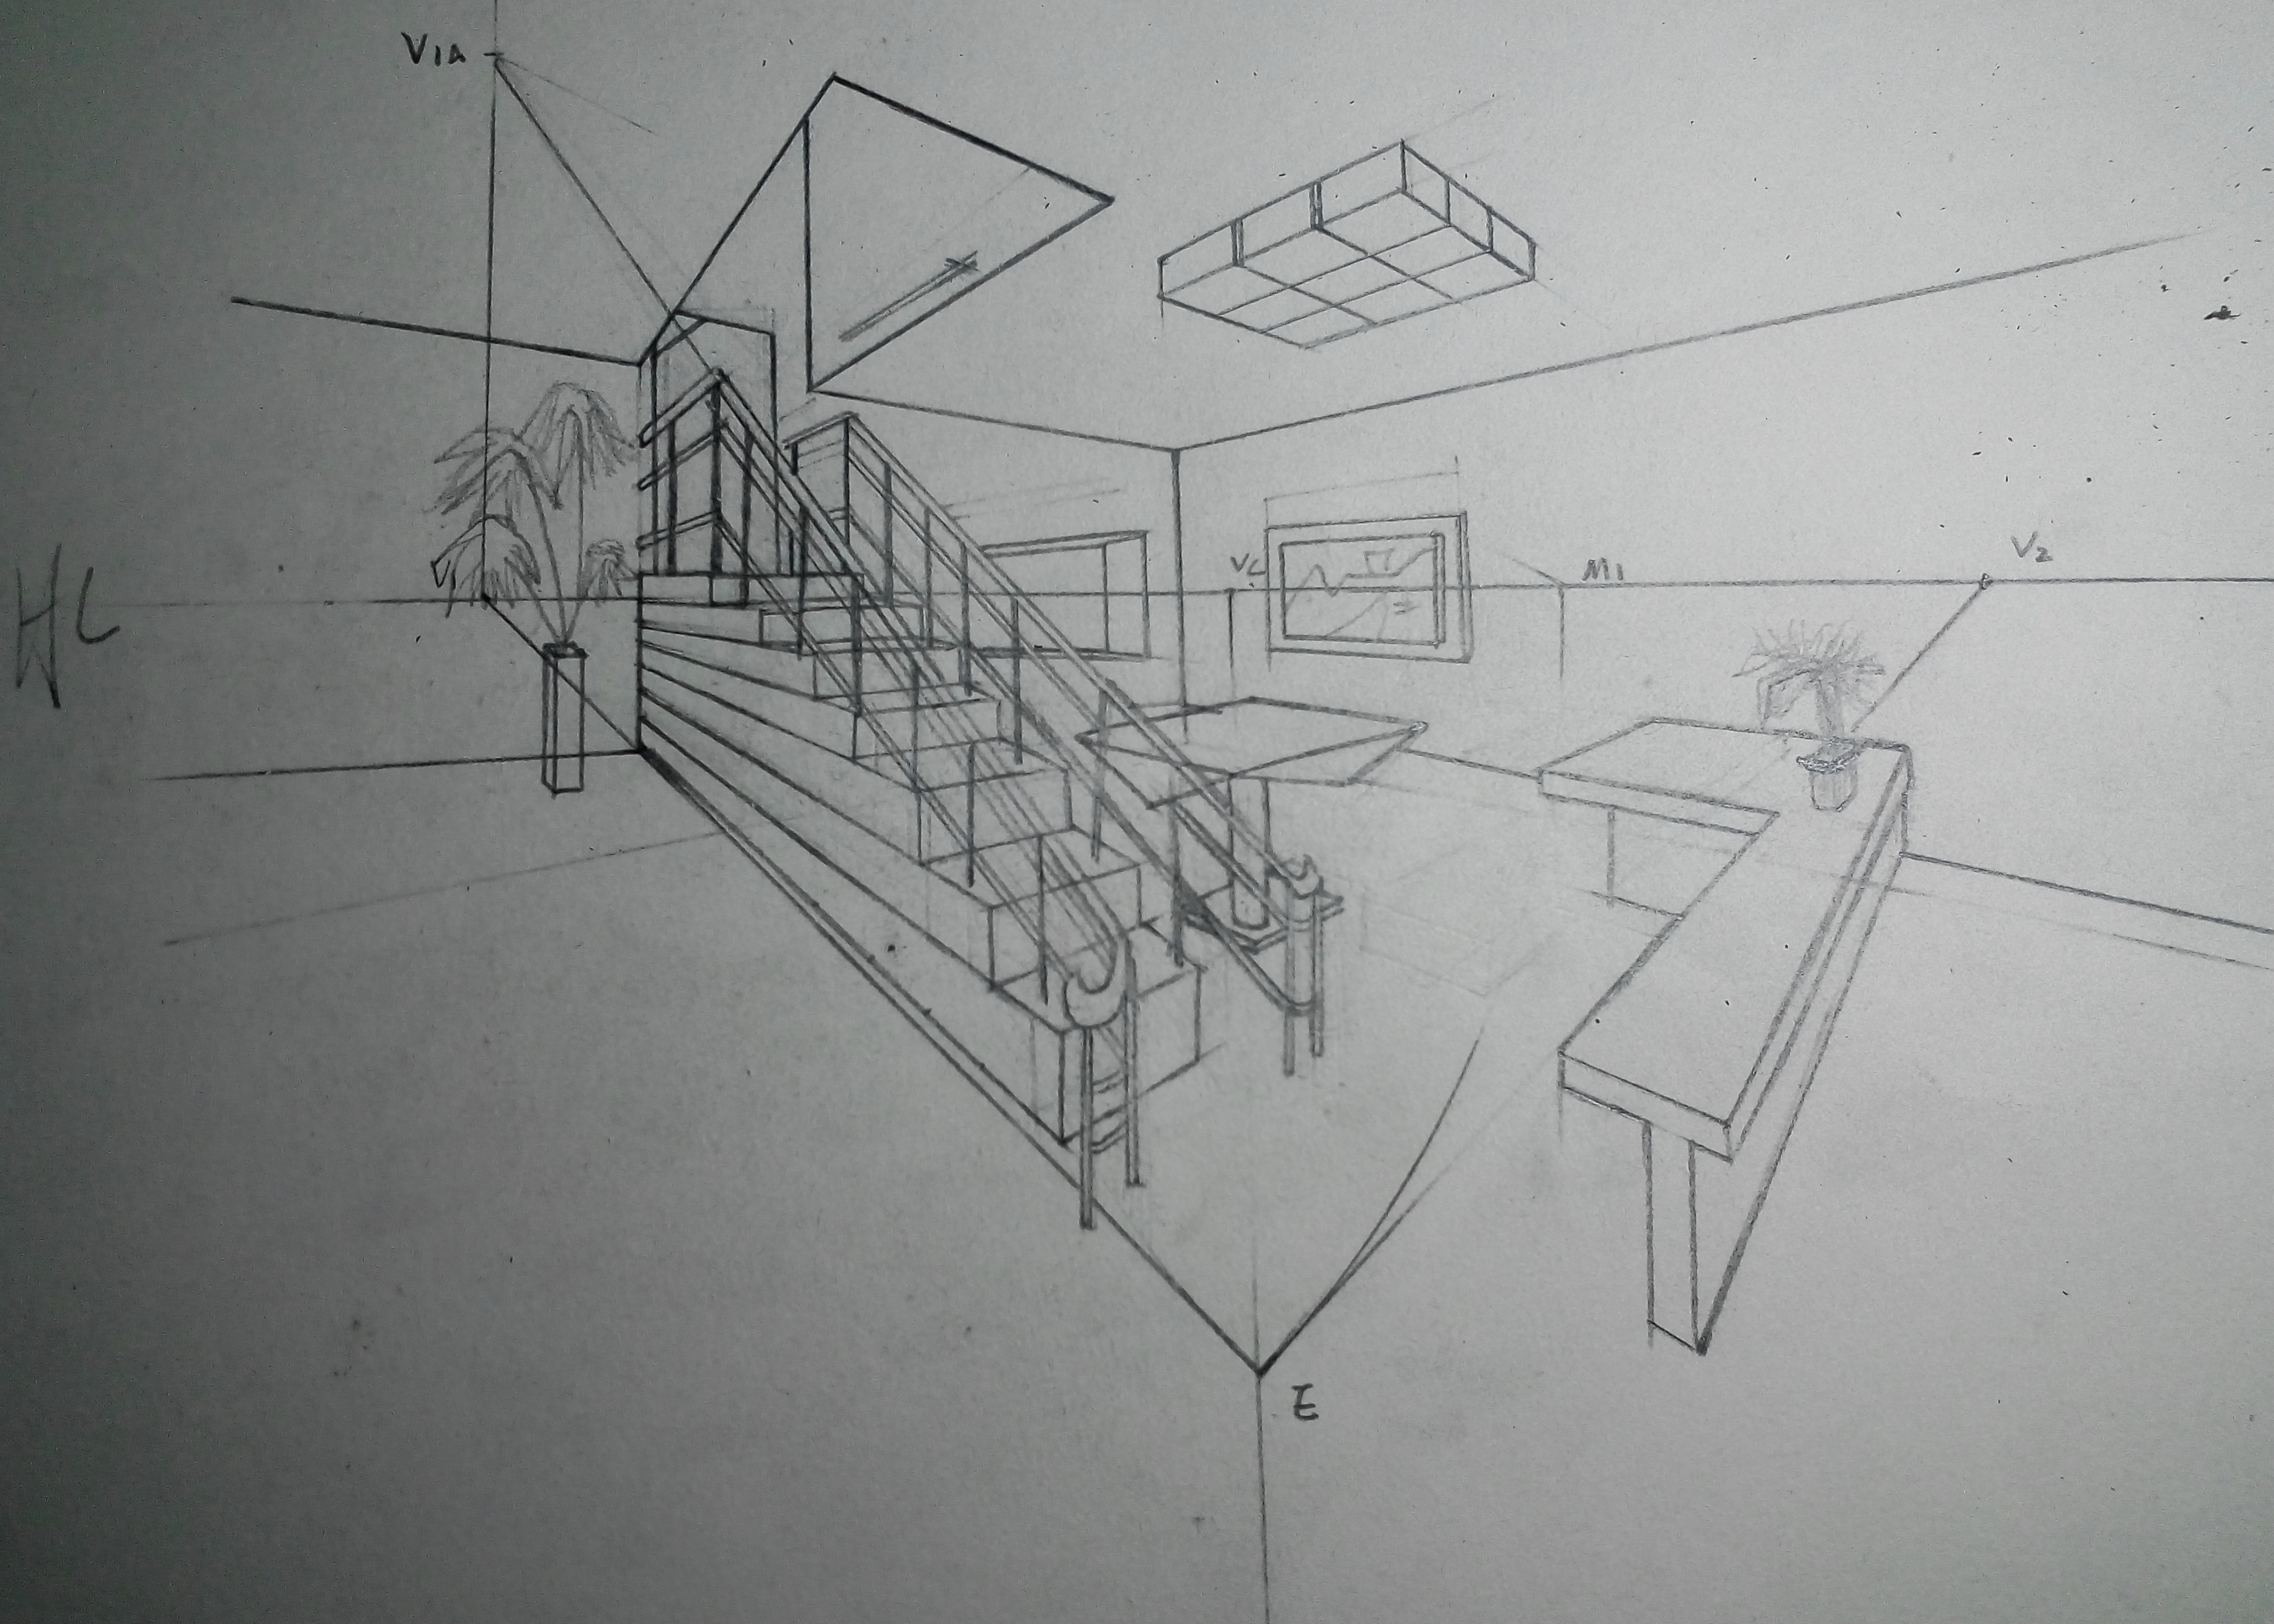 V1A
HL
V1
VC
M1
V2
E